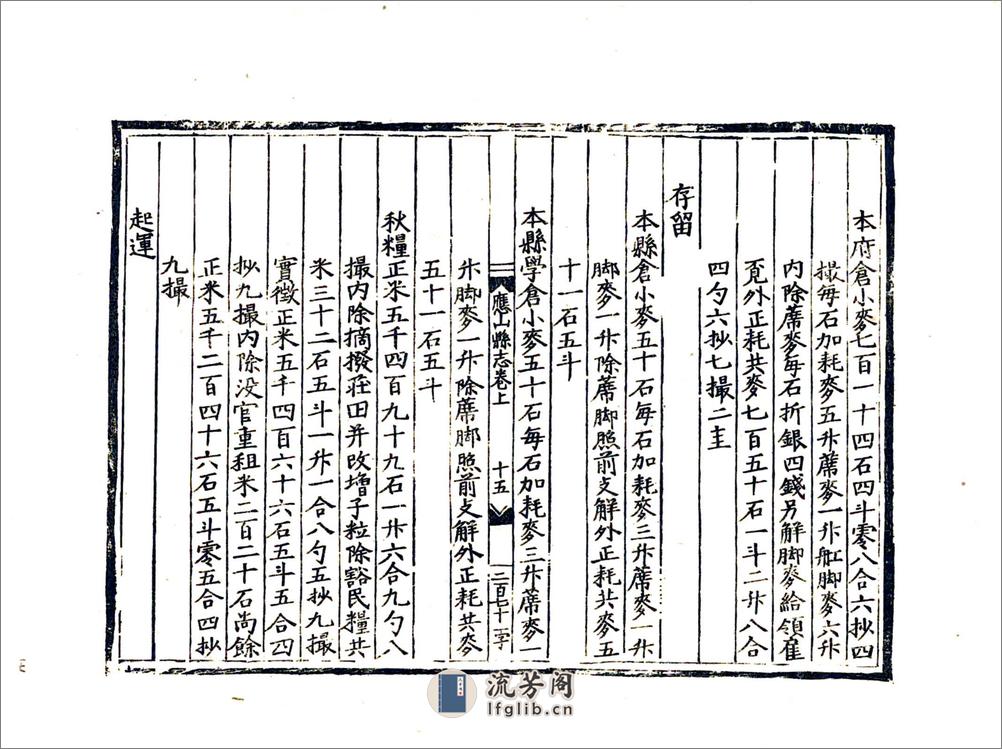 本府倉小麥七百一十四石四斗零八合六抄四
撮每石加耗麥五升蓆麥一升舡脚麥六升
内除蓆麥每石折銀四錢另解脚麥給領雇
覔外正耗共麥七百五十石一斗二升八合
四勺六抄七撮二圭
存留
本縣倉小麥五十石每石加耗麥三升蓆麥一升
脚麥一升除蓆脚照前支解外正耗共麥五
十一石五斗
本縣學倉小麥五十石每石加耗麥三升蓆麥一
應山縣志卷上 十五 二百七十一字
升脚麥一升除蓆脚照前支解外正耗共麥
五十一石五斗
秋糧正米五千四百九十九石一升六合九勺八
撮内除摘撥莊田并改增子粒除豁民糧共
米三十二石五斗一升一合八勺五抄九撮
實徵正米五千四百六十六石五斗五合四
抄九撮内除没官重租米二百二十石尚餘
正米五千二百四十六石五斗零五合四抄
九撮
起運
流芳阁
lfglib.cn